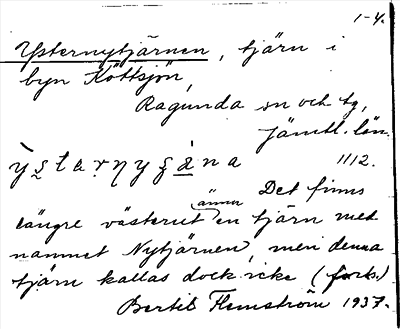 1-4.
Ysternytjärnen, tjärn i
byn Köttsjön,
Ragunda sn och tg,
Jämtl. län.
1112.
Det finns
längre västerut ännu en tjärn med
namnet Nytjärnen, men denna
tjärn kallas dock icke (fork.)
Bertil Flemström 1937.